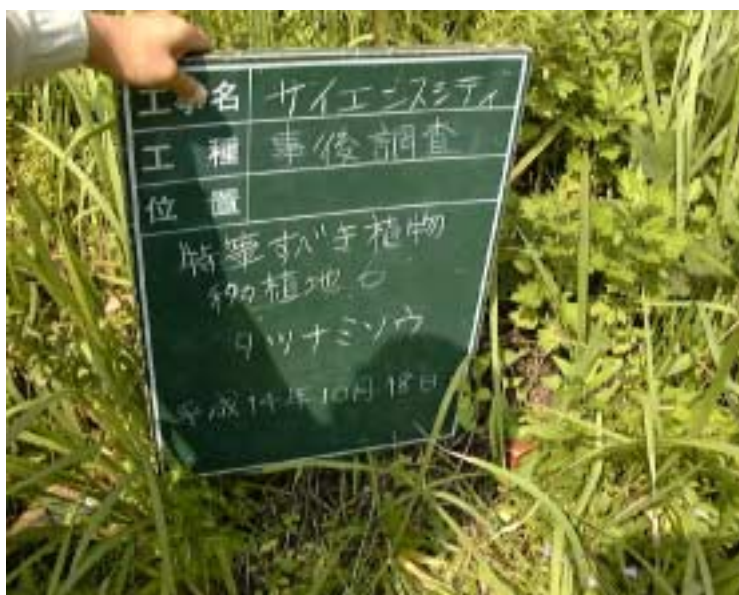 工事名 サイエンスシティ
工種 事後調査
位置
特筆すべき植物
移植地
タツナミソウ
平成14年10月18日